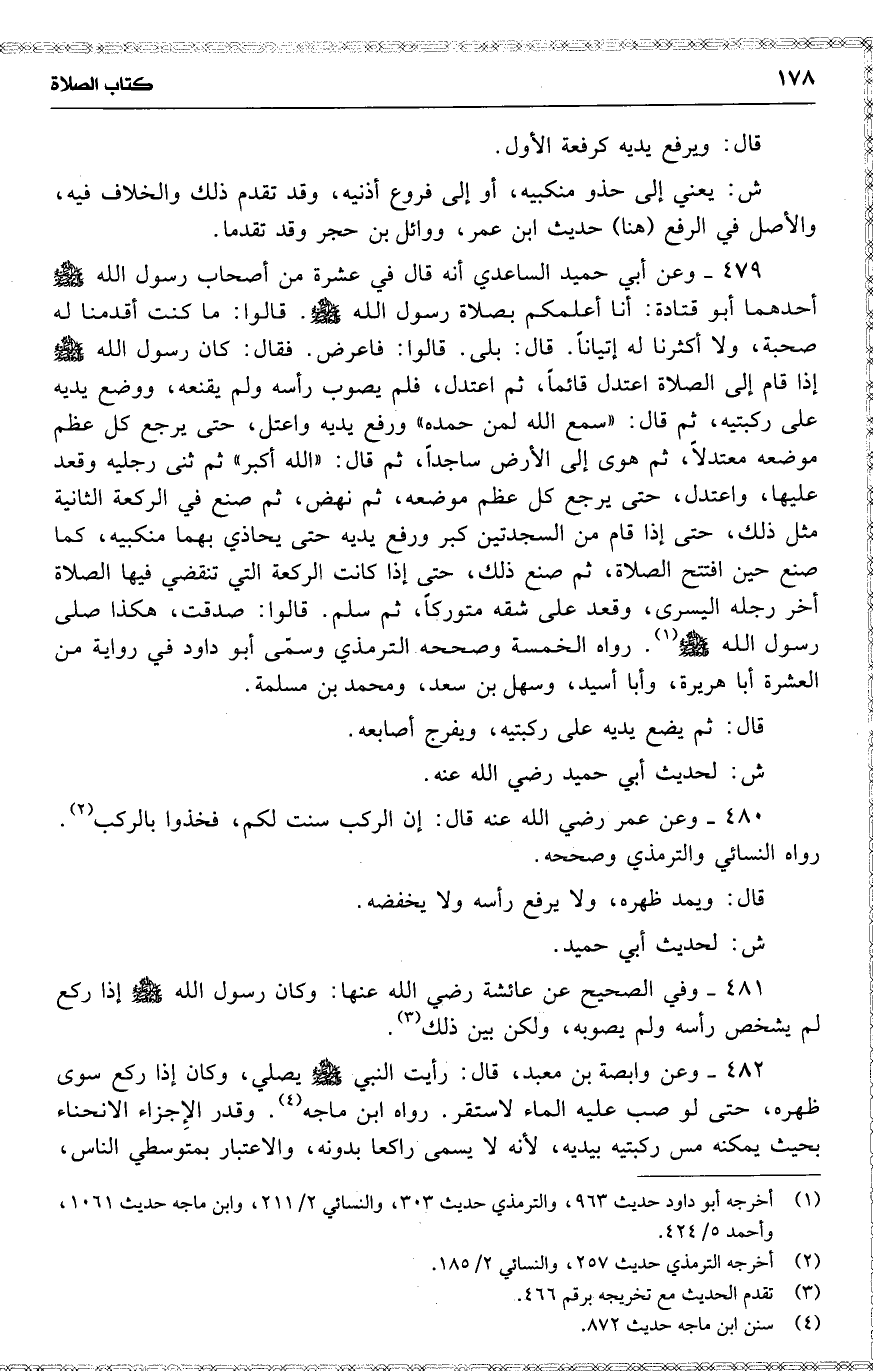 ١٧٨
كتاب الصلاة
قال: ويرفع يديه كرفعة الأول.
ش: يعني إلى حذو منكبيه، أو إلى فروع أذنيه، وقد تقدم ذلك والخلاف فيه،
والأصل في الرفع (هنا) حديث ابن عمر، ووائل بن حجر وقد تقدما.
٤٧٩ ـ وعن أبي حميد الساعدي أنه قال في عشرة من أصحاب رسول الله ﷺ
أحدهما أبو قتادة: أنا أعلمكم بصلاة رسول الله ﷺ. قالوا: ما كنت أقدمنا له
صحبة، ولا أكثرنا له إتياناً. قال: بلى. قالوا: فاعرض. فقال: كان رسول الله ﷺ
إذا قام إلى الصلاة اعتدل قائماً، ثم اعتدل، فلم يصوب رأسه ولم يقنعه، ووضع يديه
على ركبتيه، ثم قال: «سمع الله لمن حمده» ورفع يديه واعتل، حتى يرجع كل عظم
موضعه معتدلاً، ثم هوى إلى الأرض ساجداً، ثم قال: «الله أكبر» ثم ثنى رجليه وقعد
عليها، واعتدل، حتى يرجع كل عظم موضعه، ثم نهض، ثم صنع في الركعة الثانية
مثل ذلك، حتى إذا قام من السجدتين كبر ورفع يديه حتى يحاذي بهما منكبيه، كما
صنع حين افتتح الصلاة، ثم صنع ذلك، حتى إذا كانت الركعة التي تنقضي فيها الصلاة
أخر رجله اليسرى، وقعد على شقه متوركاً، ثم سلم. قالوا: صدقت، هكذا صلى
رسول الله ﷺ(١). رواه الخمسة وصححه الترمذي وسمّى أبو داود في رواية من
العشرة أبا هريرة، وأبا أسيد، وسهل بن سعد، ومحمد بن مسلمة.
قال: ثم يضع يديه على ركبتيه، ويفرج أصابعه.
ش: لحديث أبي حميد رضي الله عنه.
٤٨٠ ـ وعن عمر رضي الله عنه قال: إن الركب سنت لكم، فخذوا بالركب(٢).
رواه النسائي والترمذي وصححه.
قال: ويمد ظهره، ولا يرفع رأسه ولا يخفضه.
ش: لحديث أبي حميد.
٤٨١ ـ وفي الصحيح عن عائشة رضي الله عنها: وكان رسول الله ﷺ إذا ركع
لم يشخص رأسه ولم يصوبه، ولكن بين ذلك(٣).
٤٨٢ ـ وعن وابصة بن معبد، قال: رأيت النبي ﷺ يصلي، وكان إذا ركع سوى
ظهره، حتى لو صب عليه الماء لاستقر. رواه ابن ماجه(٤). وقدر الإجزاء الانحناء
بحيث يمكنه مس ركبتيه بيديه، لأنه لا يسمى راكعا بدونه، والاعتبار بمتوسطي الناس،
(١) أخرجه أبو داود حديث ٩٦٣، والترمذي حديث ٣٠٣، والنسائي ٢/ ٢١١، وابن ماجه حديث ١٠٦١،
وأحمد ٥/ ٤٢٤.
(٢) أخرجه الترمذي حديث ٢٥٧، والنسائي ٢/ ١٨٥.
(٣) تقدم الحديث مع تخريجه برقم ٤٦٦.
(٤) سنن ابن ماجه حديث ٨٧٢.